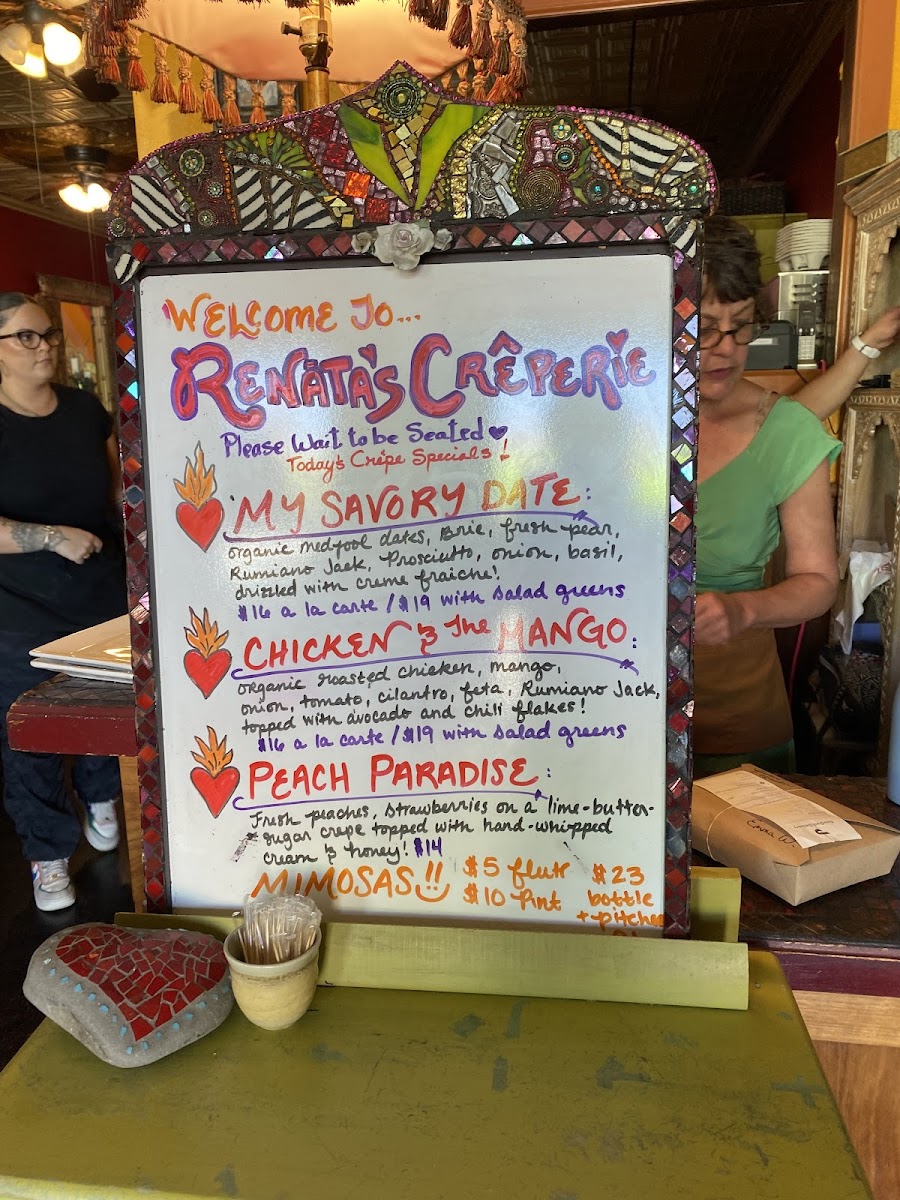 WELCOME TO...
RENÄTA'S CRÊPERIE
Please Wait to be Seated ♥
Today's Crêpe Specials!
MY SAVORY DATE:
organic medjool dates, Brie, fresh pear,
Rumiano Jack, Prosciutto, onion, basil,
drizzled with creme fraiche!
$16 a la carte / $19 with salad greens
CHICKEN & The MANGO:
organic roasted chicken, mango,
onion, tomato, cilantro, feta, Rumiano Jack,
topped with avocado and chili flakes!
$16 a la carte / $19 with salad greens
PEACH PARADISE:
Fresh peaches, strawberries on a lime-butter-
sugar crepe topped with hand-whipped
cream & honey! $14
MIMOSAS!! $5 flute $23
$10 Pint bottle
+ pitcher
Emma W.